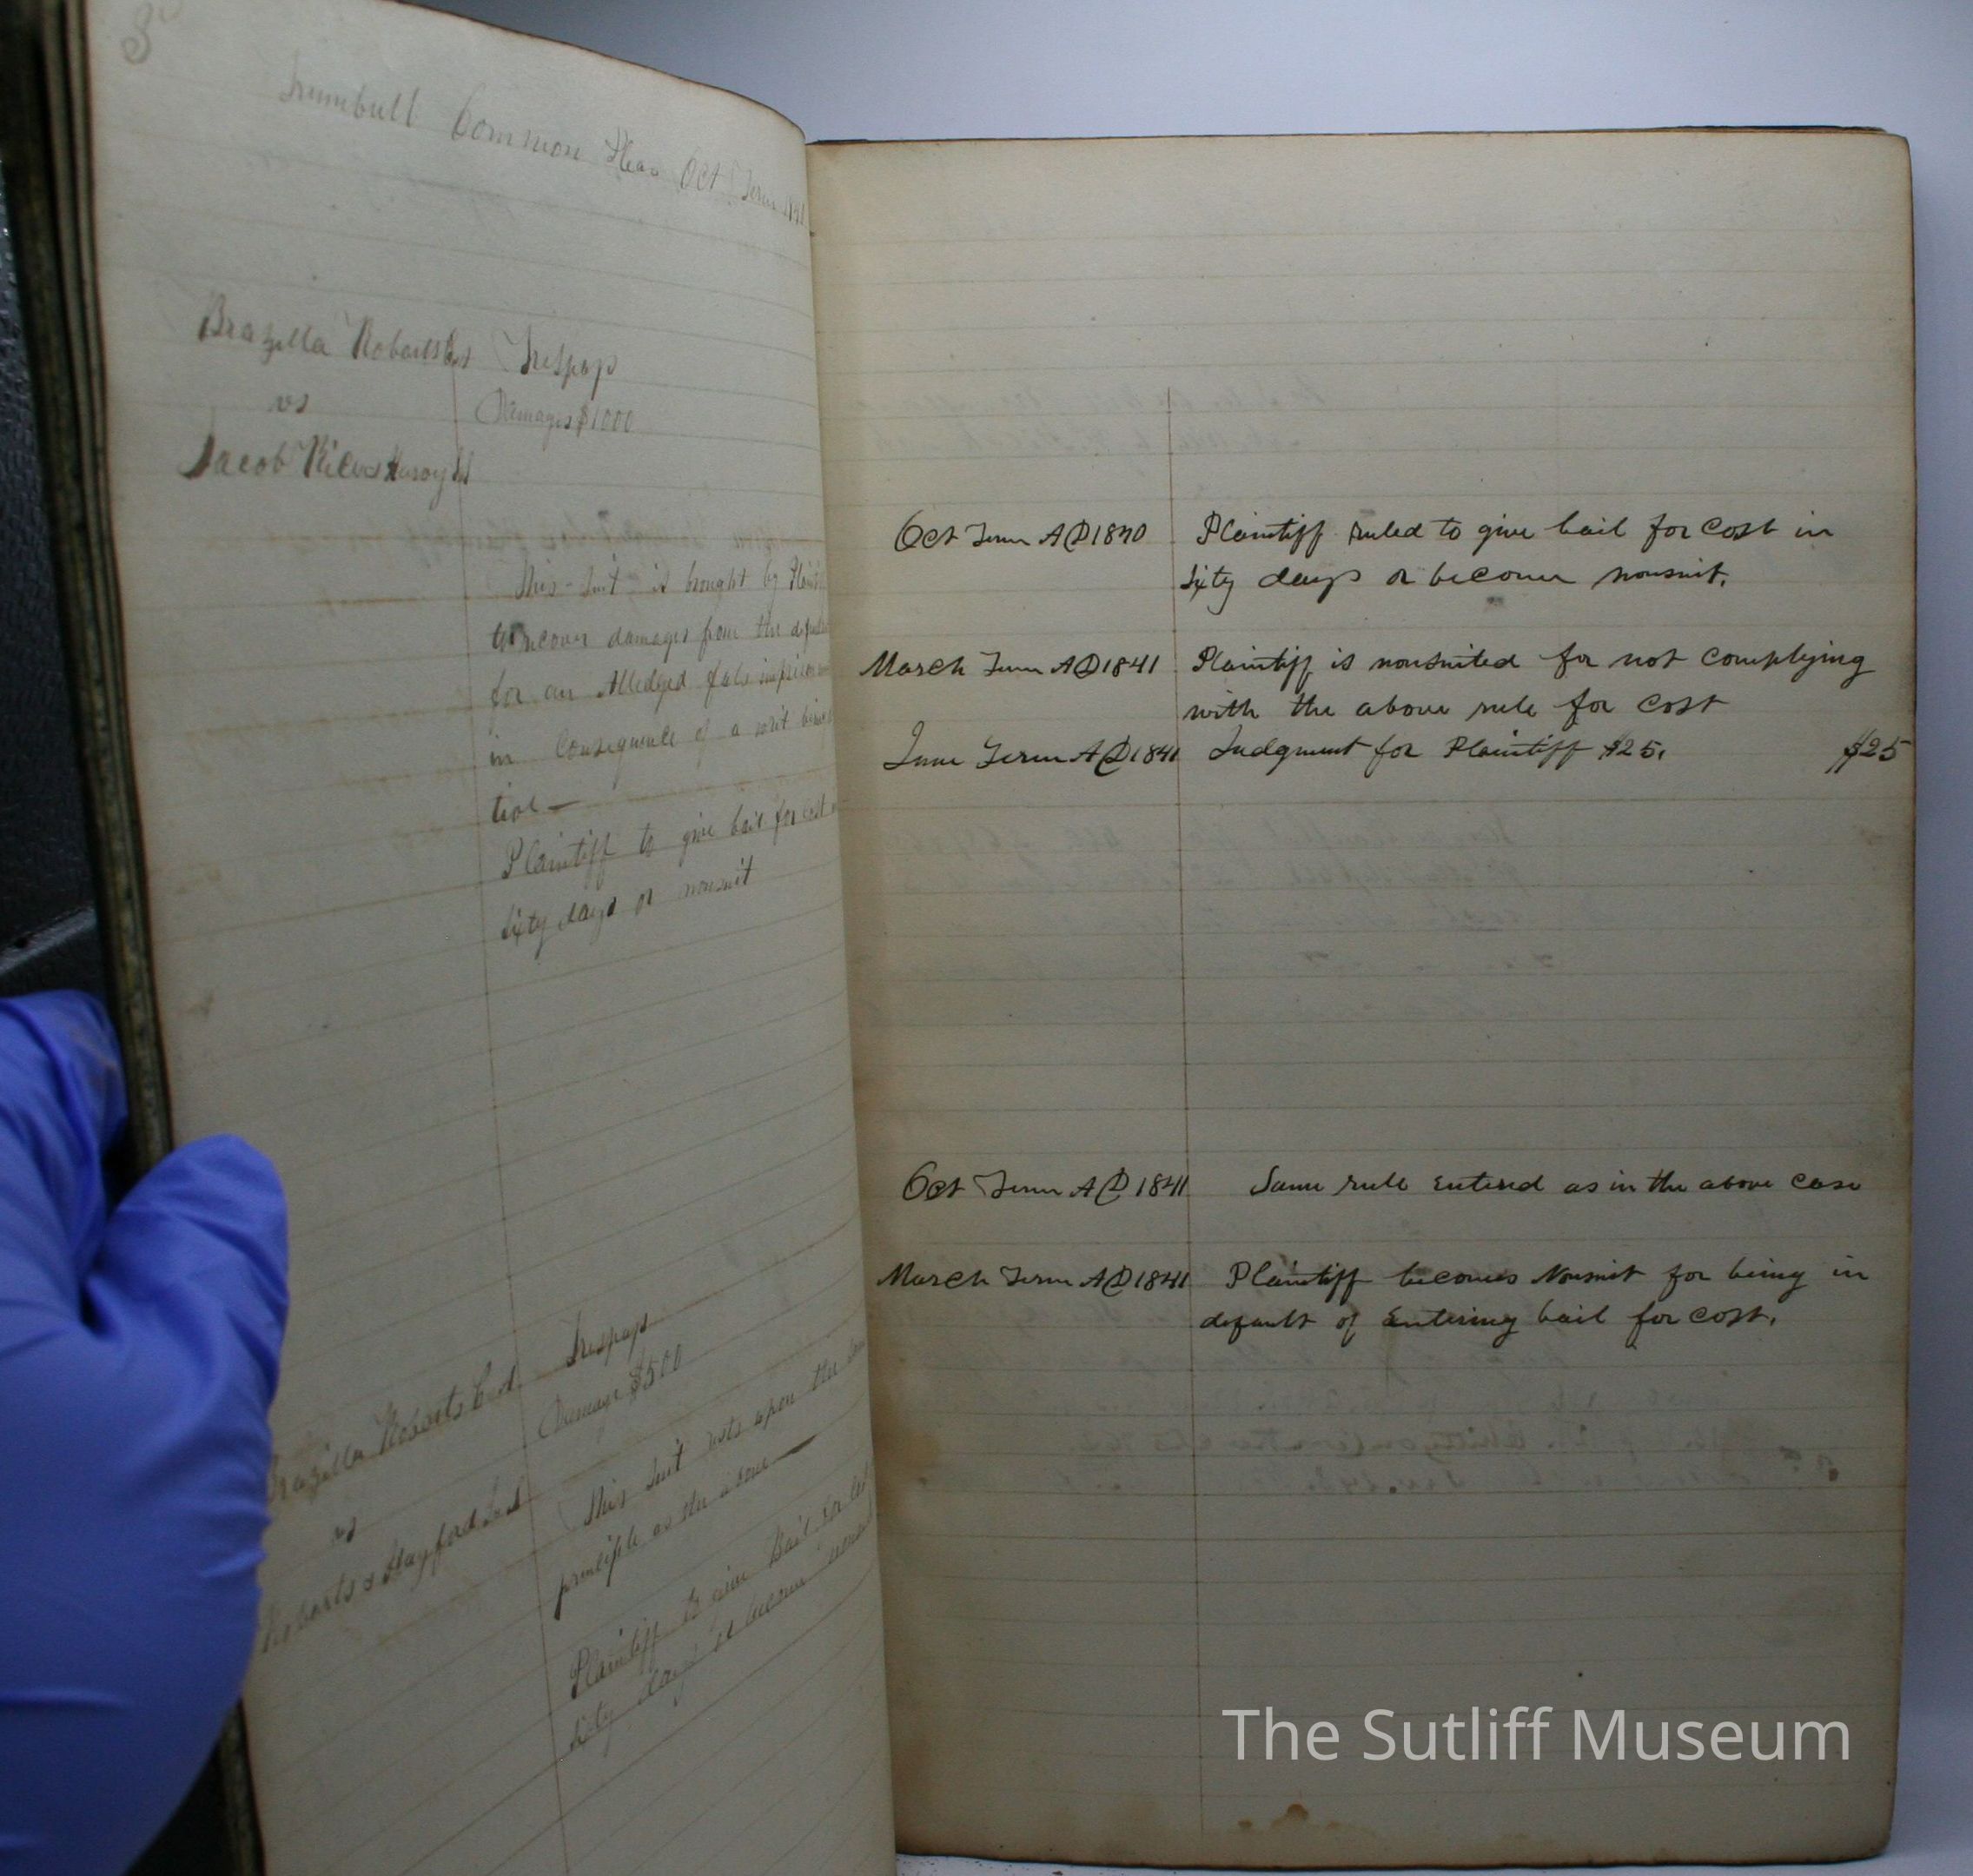 Trumbull Common Pleas Oct Term 1841
Brazilla Roberts vs Trespass
vs Damages $1000
Jacob
This suit is brought by Plaint
to recover damages from the defend
for an Alledged false imprison
in Consequence of a writ
Plaintiff to give bail for cost
Sixty days or nonsuit
Brazilla Roberts Trespass
vs Damage $500
Roberts & Hayford
This suit rests upon the
principle as the above—
Plaintiff to give Bail for
Sixty days or become
Oct Term AD 1840 Plaintiff ruled to give bail for Cost in
Sixty days or become nonsuit.
March Term AD 1841 Plaintiff is nonsuited for not Complying
with the above rule for Cost
June Term AD 1841 Judgment for Plaintiff $25. $25
Oct Term AD 1841 Same rule entered as in the above Case
March Term AD 1841 Plaintiff becomes Nonsuit for being in
default of Entering bail for Cost.
The Sutliff Museum